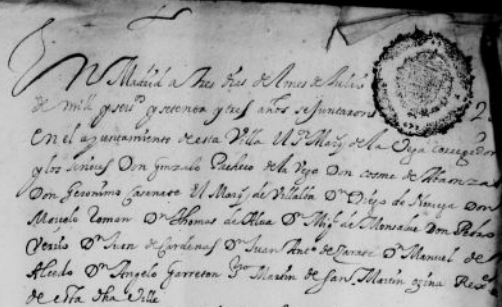 En Madrid a tres dias del mes de Julio
de mill y seisº y setenta y tres años se Juntaron
en el ayuntamiento de esta Villa El Sr Marqs de la Vega corregidor
y los señores Don Gonzalo Pacheco de la Vega Don cosme de Abaonza
Don Geronimo Casanate El Marqs de Villalta Dn Diego de Don
Marcelo Roman Dn Thomas de Alua Dn Migl de Monsalue Don Pedro
Verilo Dn Juan de Cardenas Dn Juan Antº de Zarate Dn Manuel de
Alcedo Dn Angelo Garreton Martin de San Martin Rexes
de esta dha Villa